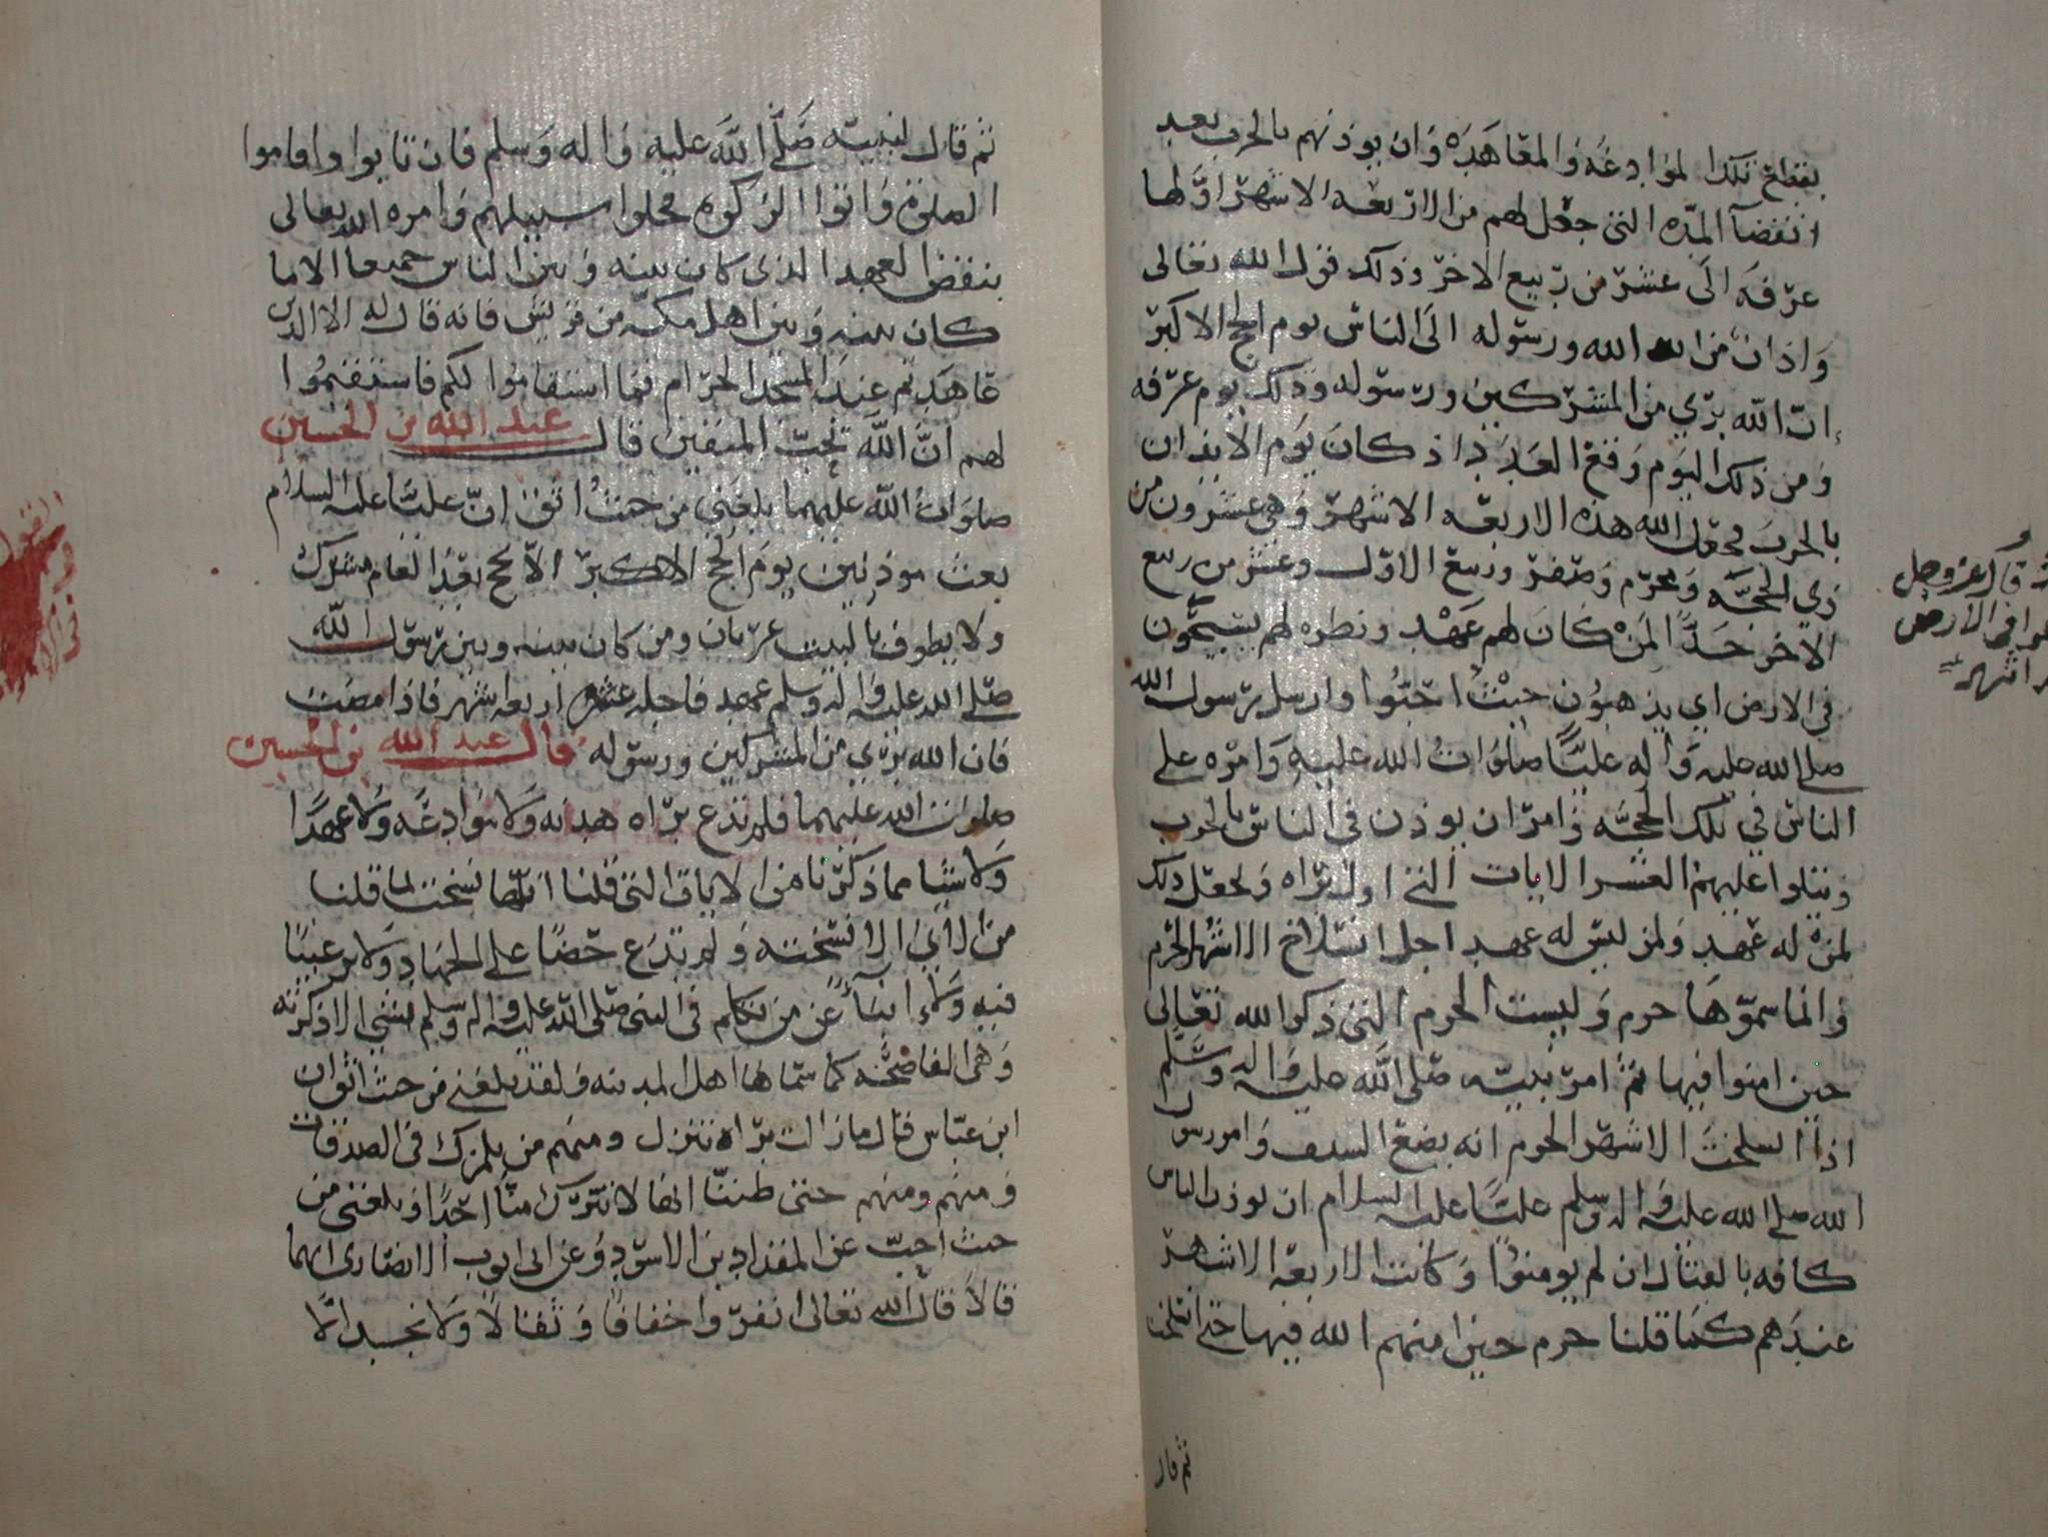 بقطع تلك الموادعه والمعاهده وان يوذنهم بالحرب بعد
انقضآ المده التي جعل لهم من الاربعه الاشهر اولها
عرفه الى عشر من ربيع الاخر وذلك قول الله تعالى
واذان من الله ورسوله الى الناس يوم الحج الاكبر
ان الله بري من المشركين ورسوله وذلك يوم عرفه
ومن ذلك اليوم وقع العدد اذ كان يوم الايذان
بالحرب فجعل الله هذه الاربعه الاشهر وهي عشرون من
ذي الحجه ومحرم وصفر وربيع الاول وعشر من ربيع
الاخر حدا لمن كان لهم عهد ونظره لهم يسيحون
في الارض اي يذهبون حيث احبوا وارسل رسول الله
صلى الله عليه واله عليا صلوات الله عليه وامره على
الناس في تلك الحجه وامر ان يوذن في الناس بالحرب
ويتلوا عليهم العشر الايات التي اول براه وجعل ذلك
لمن له عهد ولمن ليس له عهد اجل انسلاخ الاشهر الحرم
وانما سموها حرم وليست الحرم التي ذكر الله تعالى
حين امنوا فيها ثم امر نبيه صلى الله عليه واله وسلم
اذا انسلخت الاشهر الحرم انه يضع السيف وامر رسول
الله صلى الله عليه واله وسلم عليا عليه السلام ان يوذن الناس
كافه بالقتال ان لم يومنوا وكانت الاربعه الاشهر
عندهم كما قلنا حرم حين امنهم الله فيها حتى انسلخت
ثم قال
قال عز وجل
في الارض
اشهر
ثم قال لنبيه صلى الله عليه واله وسلم فان تابوا واقاموا
الصلوة واتوا الزكوه فخلوا سبيلهم وامره الله تعالى
بنقض العهد الذي كان بينه وبين الناس جميعا الا ما
كان بينه وبين اهل مكه من قريش فانه قال له الا الذين
عاهدتم عند المسجد الحرام فما استقاموا لكم فاستقيموا
لهم ان الله يحب المتقين قال عبد الله بن الحسين
صلوات الله عليهما بلغني من حيث اثق ان عليا عليه السلام
بعث موذنين يوم الحج الاكبر الا يحج بعد العام مشرك
ولا يطوف بالبيت عريان ومن كان بينه وبين رسول الله
صلى الله عليه واله وسلم عهد فاجله اربعه اشهر فاذا مضت
فان الله بري من المشركين ورسوله قال عبد الله بن الحسين
صلوات الله عليهما فلم تدع براه هدنه ولا موادعه ولا عهدا
ولا شيا مما ذكرنا من الايات التي قلنا انها نسخت لما قلنا
من الاي الا نسخته ولم تدع حضا على الجهاد ولا ترغيبا
فيه ولا انبآء عن من تكلم في النبي صلى الله عليه واله وسلم بشي الا ذكرته
وهي الفاضحه كما سماها اهل المدينه ولقد بلغني من حيث اثق ان
ابن عباس قال ما زالت براه تنزل ومنهم من يلمزك في الصدقات
ومنهم ومنهم حتى ظننا انها لا تترك منا احدا وبلغني من
حيث احب عن المقداد بن الاسود وعن ابي ايوب الانصاري انهما
قالا قال الله تعالى انفروا خفافا وثقالا ولا نجد الا